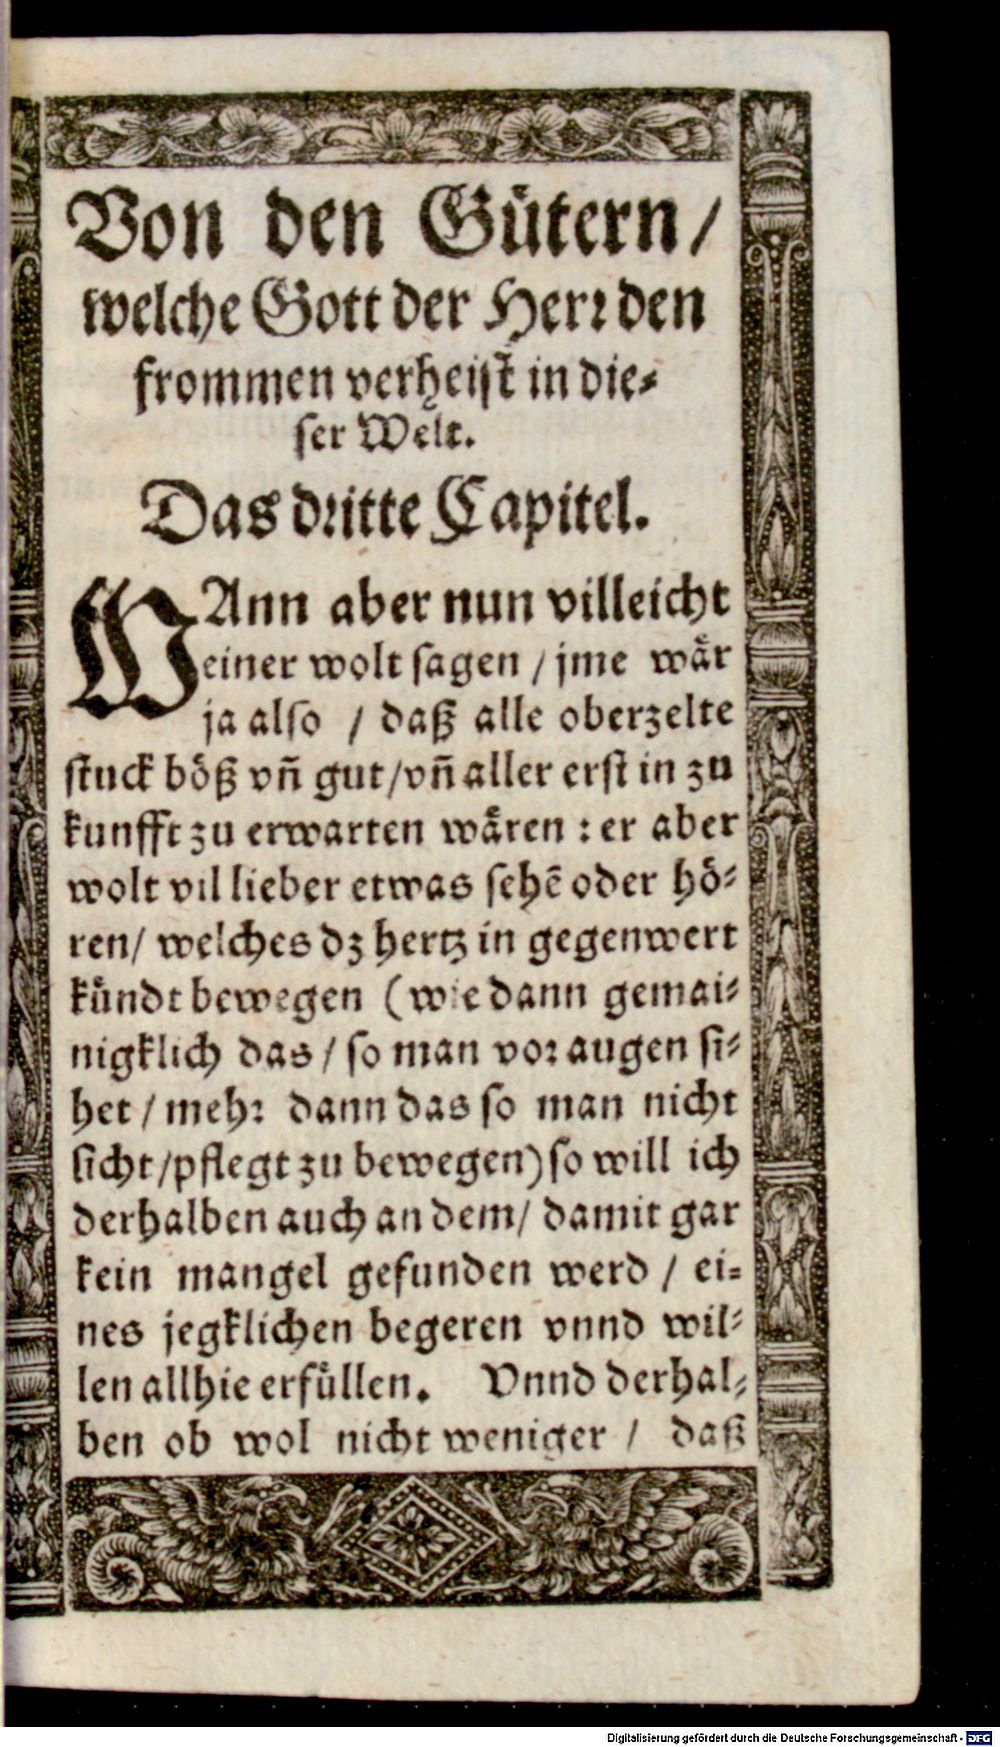 Von den Gütern /
welche Gott der Herr den
frommen verheist in die-
ser Welt.
Das dritte Capitel.
WAnn aber nun villeicht
einer wolt sagen / jme wår
ja also / daß alle oberzelte
stuck böß vñ gut / vñ aller erst in zu
kunfft zu erwarten wåren : er aber
wolt vil lieber etwas sehẽ oder hö-
ren / welches dz hertz in gegenwert
kündt bewegen (wie dann gemai-
nigklich das / so man vor augen si-
het / mehr dann das so man nicht
sicht / pflegt zu bewegen) so will ich
derhalben auch an dem / damit gar
kein mangel gefunden werd / ei-
nes jegklichen begeren vnnd wil-
len allhie erfüllen. Vnnd derhal-
ben ob wol nicht weniger / daß
Digitalisierung gefördert durch die Deutsche Forschungsgemeinschaft - DFG